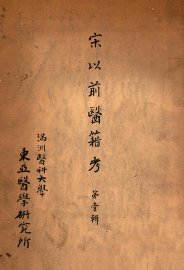 宋以前醫籍考
第壹輯
滿洲醫科大學
東亞醫學研究所